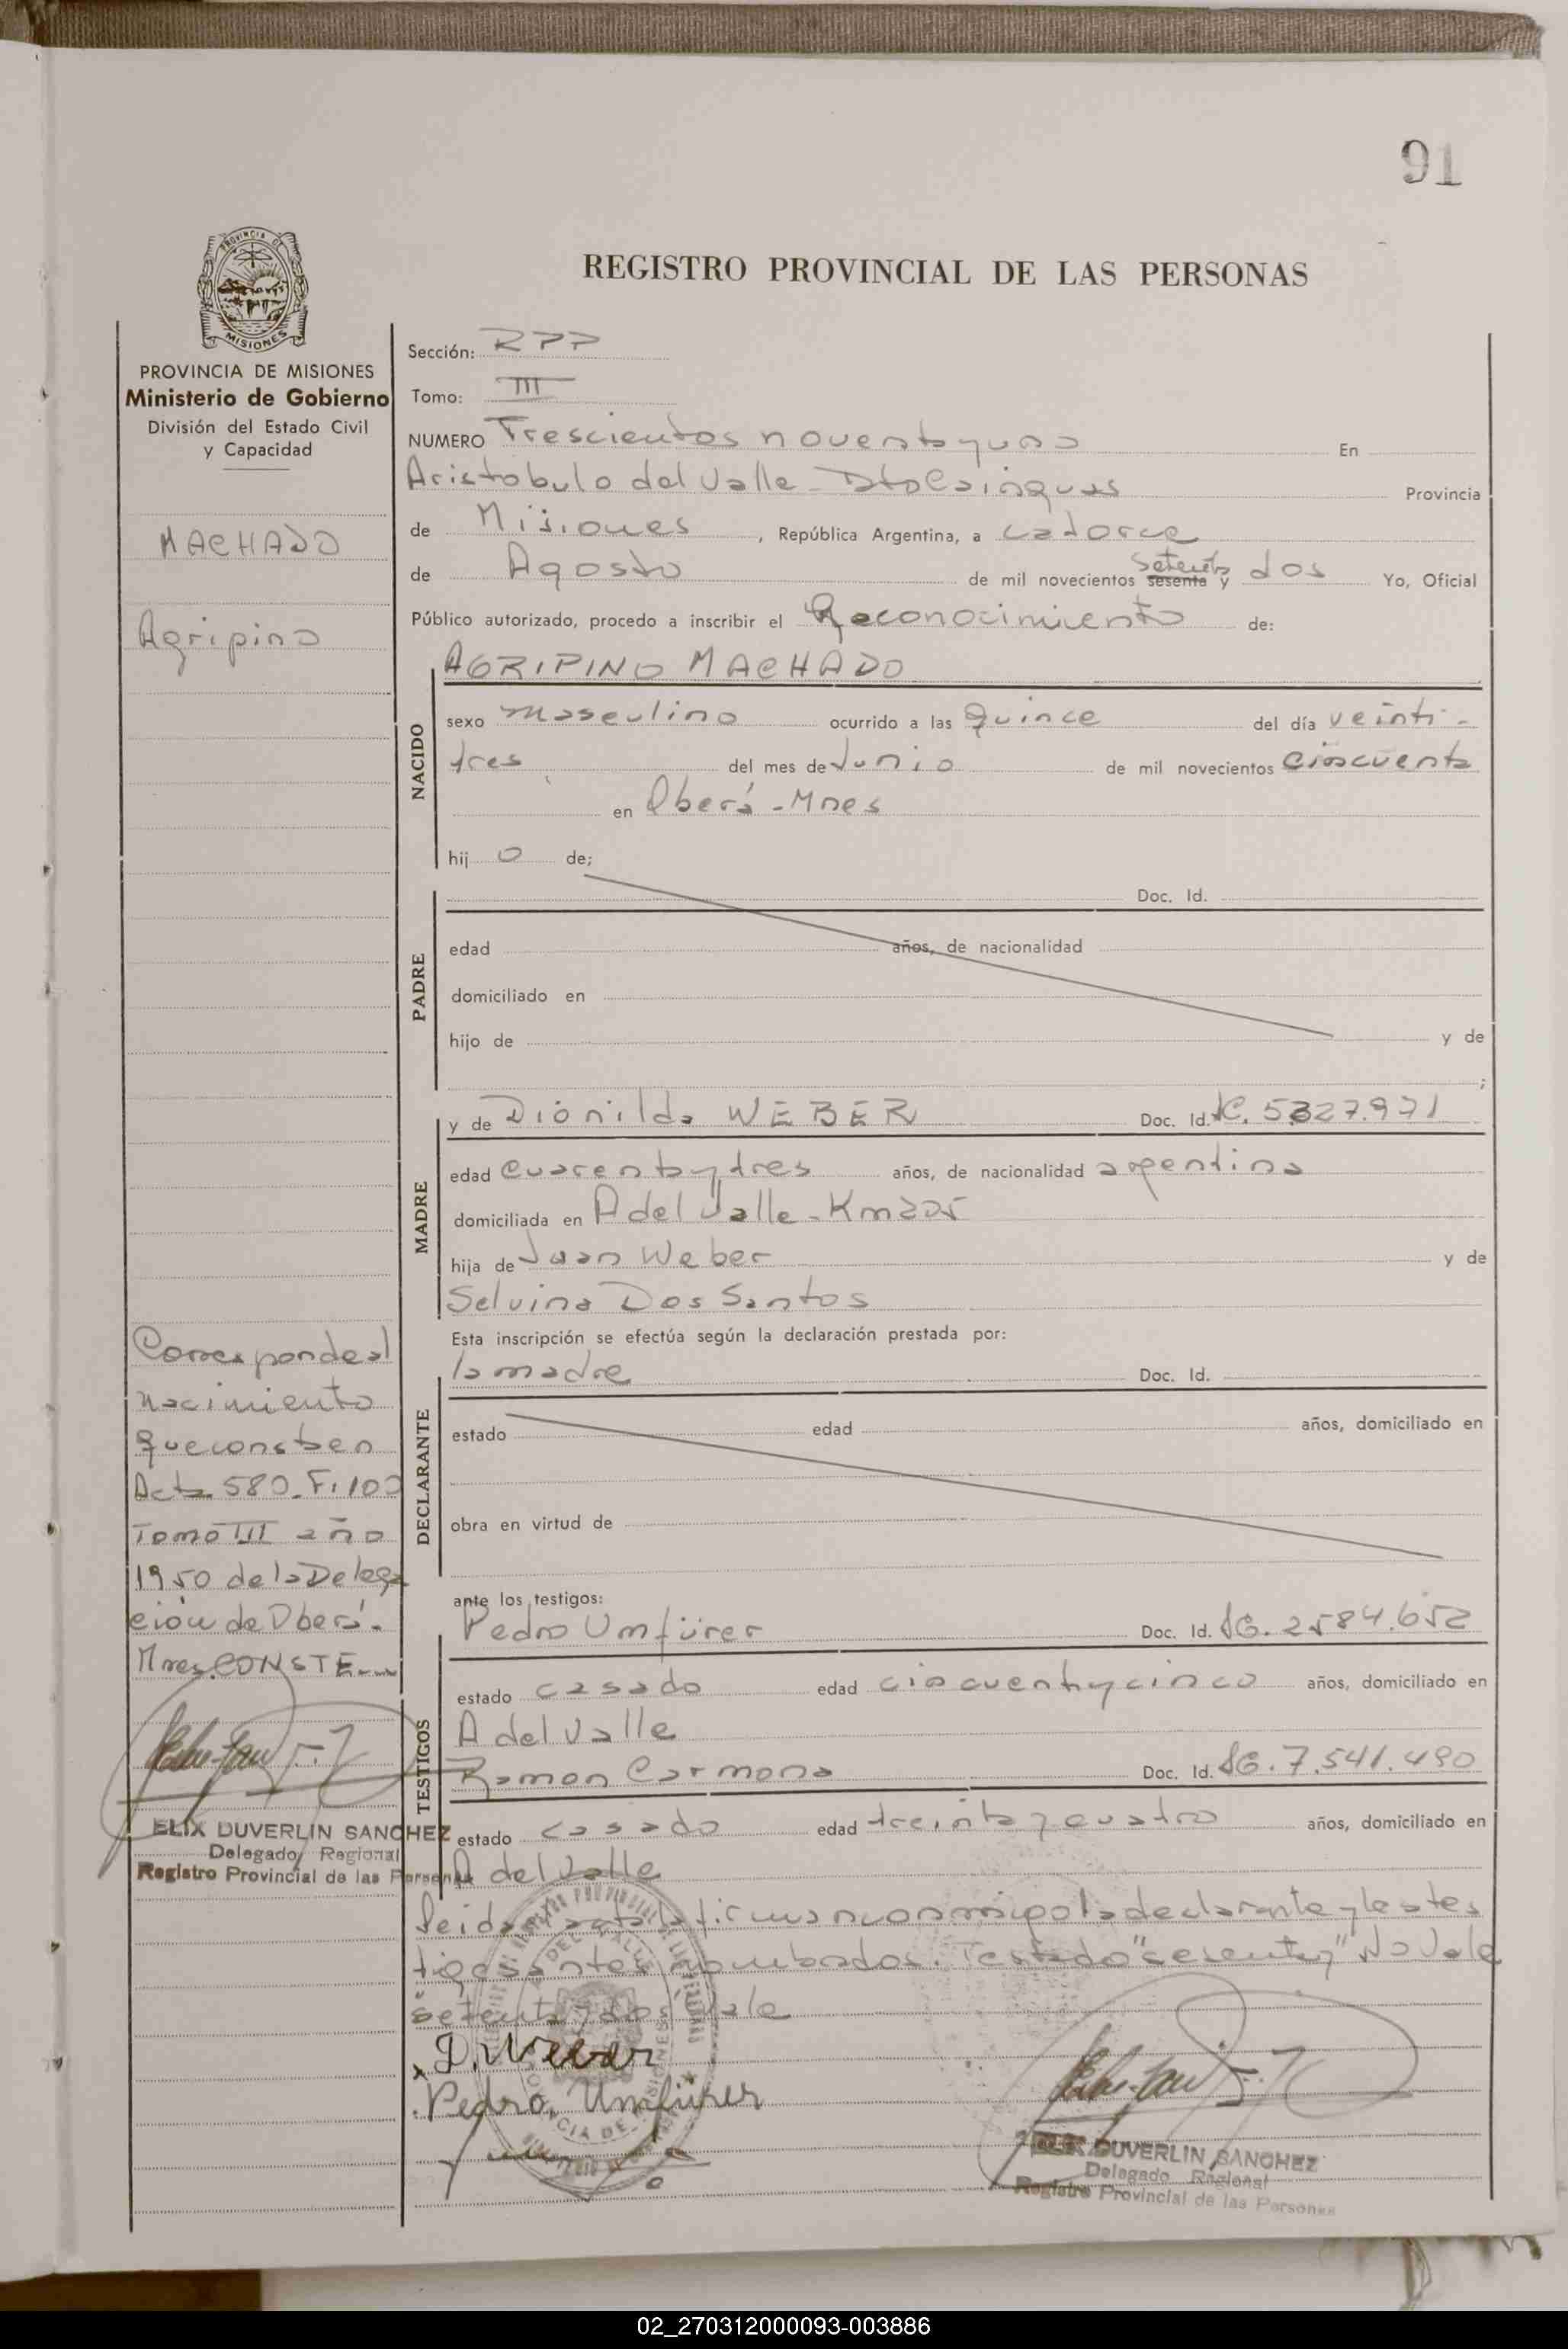 91
REGISTRO PROVINCIAL DE LAS PERSONAS
PROVINCIA DE
MISIONES
PROVINCIA DE MISIONES
Ministerio de Gobierno
División del Estado Civil
y Capacidad
MACHADO
Agripino
Corresponde al
nacimiento
que consta en
Acta 580. F. 100
Tomo III año
1950 de la Delega
ción de Oberá.
Mnes. CONSTE.
ELIX DUVERLIN SANCHEZ
Delegado Regional
Registro Provincial de las Personas
Sección: RPP
Tomo: III
NUMERO Trescientos noventa y uno En
Aristobulo del Valle - Dto Cainguas Provincia
de Misiones, República Argentina, a catorce
de Agosto de mil novecientos sesenta y setenta dos Yo, Oficial
Público autorizado, procedo a inscribir el Reconocimiento de:
AGRIPINO MACHADO
NACIDO
sexo masculino ocurrido a las quince del día veinti-
tres del mes de Junio de mil novecientos cincuenta
en Oberá - Mnes
hij o de;
PADRE
Doc. Id.
edad años, de nacionalidad
domiciliado en
hijo de y de
;
MADRE
y de Dionilda WEBER Doc. Id. LC. 5.327.971
edad cuarenta y tres años, de nacionalidad argentina
domiciliada en A del Valle - Km 225
hija de Juan Weber y de
Selvina Dos Santos
Esta inscripción se efectúa según la declaración prestada por:
DECLARANTE
la madre Doc. Id.
estado edad años, domiciliado en
obra en virtud de
ante los testigos:
TESTIGOS
Pedro Umfürer Doc. Id. 2584.652
estado casado edad cincuenta y cinco años, domiciliado en
A del Valle
Ramon Carmona Doc. Id. 7.541.490
estado casado edad treinta y cuatro años, domiciliado en
A del Valle
Leida acta la firman conmigo la declarante y los tes
tigos antes nombrados. Testado "sesenta y" No Vale
setenta y dos Vale
D. Weber
Pedro, Umfürer
ELIX DUVERLIN SANCHEZ
Delegado Regional
Registro Provincial de las Personas
02_270312000093-003886